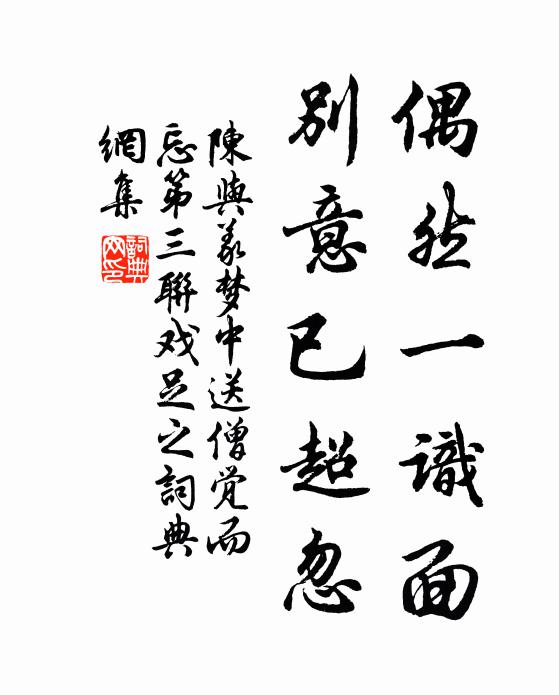 偶然一識面
別意已超忽
陳與義夢中送僧覺而
忘第三聯戏足之詞典
網集
詞典網印